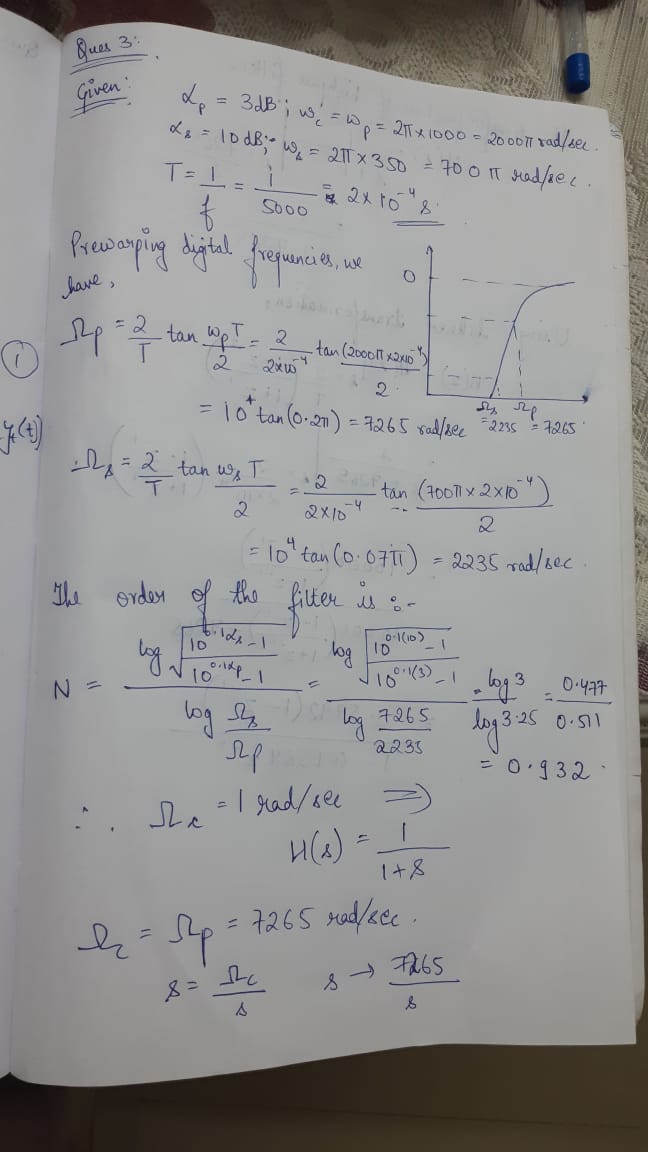 Ques 3:
Given:
α_p = 3dB ; ω_c = ω_p = 2π×1000 = 2000π rad/sec.
α_s = 10 dB; ω_s = 2π×350 = 700π rad/sec.
T = 1/f = 1/5000 = 2×10⁻⁴ s.
Prewarping digital frequencies, we
have,
0
Ω_s = 2235
Ω_p = 7265
①
y(t)
Ω_p = 2/T tan ω_pT/2 = 2/2×10⁻⁴ tan (2000π×2×10⁻⁴)/2
= 10⁴ tan(0.2π) = 7265 rad/sec
∴ Ω_s = 2/T tan ω_sT/2 = 2/2×10⁻⁴ tan (700π×2×10⁻⁴)/2
= 10⁴ tan(0.07π) = 2235 rad/sec.
The order of the filter is :-
N = log √(10^0.1α_s −1 / 10^0.1α_p −1) / log Ω_s/Ω_p = log √(10^0.1(10) −1 / 10^0.1(3) −1) / log 7265/2235 = log 3/log 3.25 = 0.477/0.511
= 0.932.
∴ Ω_c = 1 rad/sec ⇒
H(s) = 1/1+s
Ω_c = Ω_p = 7265 rad/sec.
s = Ω_c/s s → 7265/s